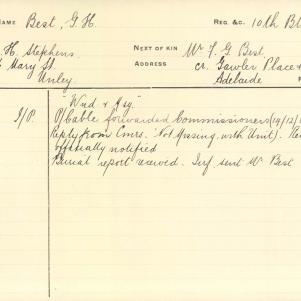 NAME Best, G. H. REG. &C. 10th B
H. Stephens NEXT OF KIN Mr F. G. Best
Mary St. ADDRESS cr. Gawler Place &
Unley Adelaide
"Wnd & Msg"
P/Cable forwarded Commissioners (19/12/
Reply from Cmrs. Not Missing with Unit).
officially notified
Burial report received. Inf. sent Mr Best